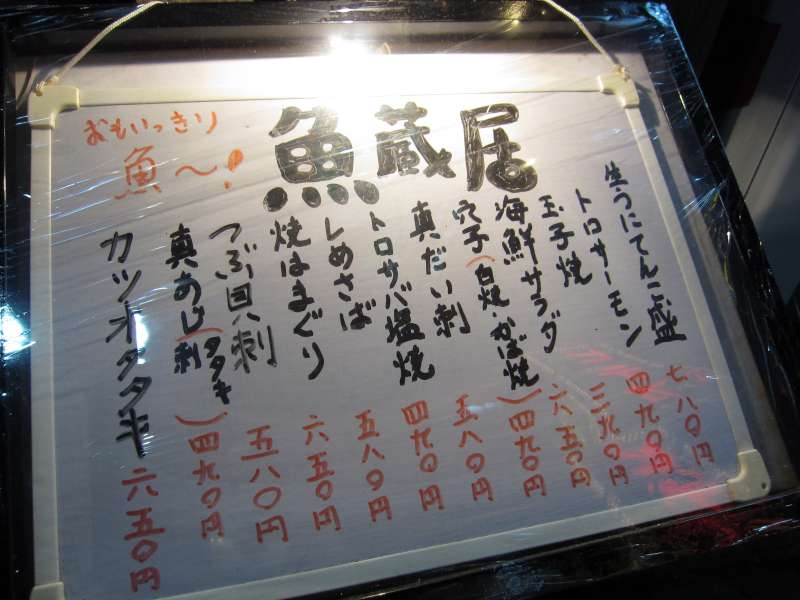 おもいっきり
魚〜!
魚蔵居
生うにてんこ盛 七八〇円
トロサーモン 四九〇円
玉子焼 三九〇円
海鮮サラダ 六五〇円
穴子(白焼・かば焼) 四九〇円
真だい刺 五八〇円
トロサバ塩焼 四九〇円
しめさば 五八〇円
焼はまぐり 六五〇円
つぶ貝刺 五八〇円
真あじ(タタキ刺) 四九〇円
カツオタタキ 六五〇円